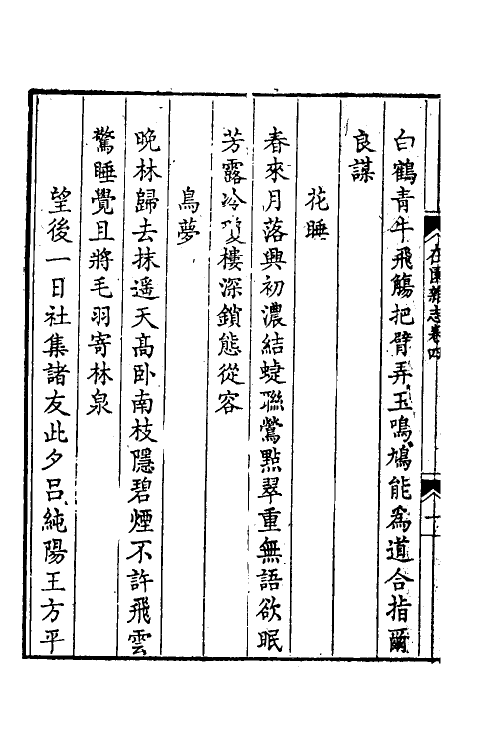 在園雜志卷四
白鶴青牛飛觴把臂弄玉鳴鳩能爲道合指爾
良謀
花睡
春來月落興初濃結蜨聯鶯點翠重無語欲眠
芳露冷樓深鎖態從容
鳥夢
晚林歸去抹遥天高卧南枝隱碧煙不許飛雲
驚睡覺且將毛羽寄林泉
望後一日社集諸友此夕呂純陽王方平